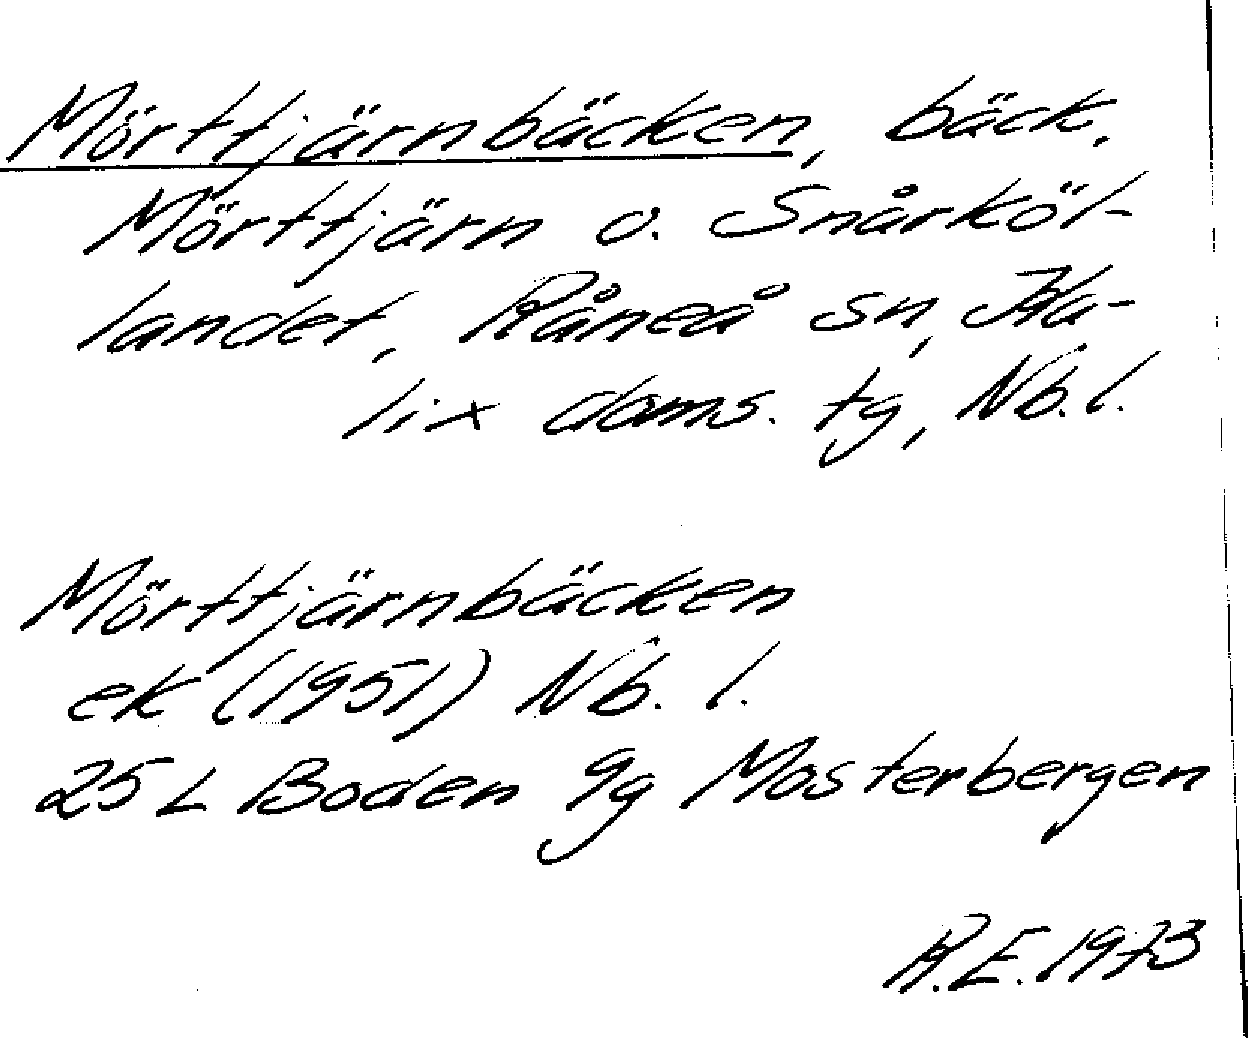 Mörttjärnbäcken, bäck,
Mörttjärn o. Snårköl-
landet, Råneå sn, Ka-
lix doms. tg, Nb. l.
Mörttjärnbäcken
ek (1951) Nb. l.
25 L Boden 9g Mosterbergen
R.E. 1973